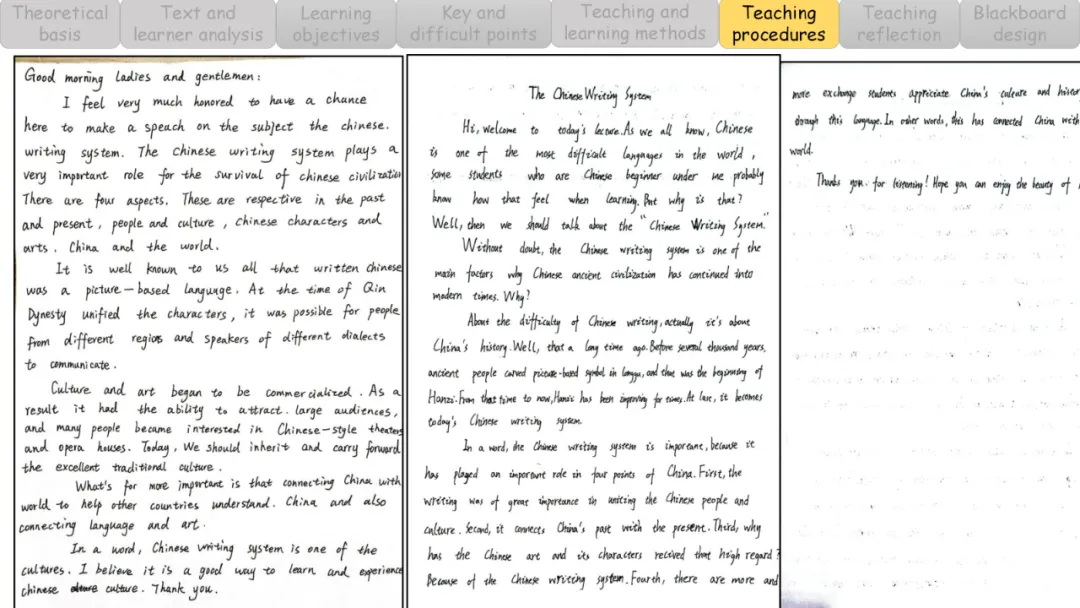 Theoretical basis
Text and learner analysis
Learning objectives
Key and difficult points
Teaching and learning methods
Teaching procedures
Teaching reflection
Blackboard design
Good morning ladies and gentlemen:
I feel very much honored to have a chance
here to make a speach on the subject the chinese.
writing system. The Chinese writing system plays a
very important role for the survival of chinese civilization
There are four aspects. These are respective in the past
and present, people and culture, Chinese characters and
arts. China and the world.
It is well known to us all that written Chinese
was a picture-based language. At the time of Qin
Dynesty unified the characters, it was possible for people
from different regions and speakers of different dialects
to communicate.
Culture and art began to be commercialized. As a
result it had the ability to attract. large audiences,
and many people became interested in Chinese-style theaters
and opera houses. Today, We should inherit and carry forward
the excellent traditional culture.
What's far more important is that connecting China with
world to help other countries understand. China and also
connecting language and art.
In a word, Chinese writing system is one of the
cultures. I believe it is a good way to learn and experience
chinese culture. Thank you.
The Chinese Writing System
Hi, welcome to today's lecture. As we all know, Chinese
is one of the most difficult languages in the world,
some students who are Chinese beginner under me probably
know how that feel when learning. But why is that?
Well, then we should talk about the "Chinese Writing System."
Without doubt, the Chinese writing system is one of the
main factors why Chinese ancient civilization has continued into
modern times. Why?
About the difficulty of Chinese writing, actually it's about
China's history. Well, that a long time ago. Before several thousand years,
ancient people carved picture-based symbol in longgu, and that was the beginning of
Hanzi. From that time to now, Hanzi has been improving for times. At last, it becomes
today's Chinese writing system
In a word, the Chinese writing system is important, because it
has played an important role in four points of China. First, the
writing was of great importance in uniting the Chinese people and
culture. Second, it connects China's past with the present. Third, why
has the Chinese art and its characters recived that heigh regard?
Because of the Chinese writing system. Fourth, there are more and
more exchange students appreciate China's culture and histor
through this language. In other words, this has connected China with
world.
Thank you. for listening! Hope you can enjoy the beauty of